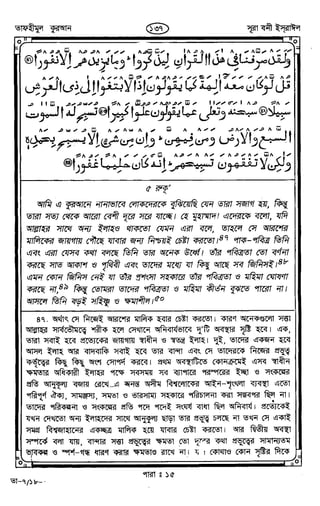 তাফহীমুল কুরআন
১৩৭
সূরা বনী ইসরাঈল
وَلَقَدْ صَرَّفْنَا فِي هٰذَا الْقُرْاٰنِ لِيَذَّكَّرُوْا ۚ وَمَا يَزِيْدُهُمْ اِلَّا نُفُوْرًا
قُلْ لَّوْ كَانَ مَعَهٗٓ اٰلِهَةٌ كَمَا يَقُوْلُوْنَ اِذًا لَّابْتَغَوْا اِلٰى ذِي الْعَرْشِ
سَبِيْلًا سُبْحٰنَهٗ وَتَعٰلٰى عَمَّا يَقُوْلُوْنَ عُلُوًّا كَبِيْرًا تُسَبِّحُ لَهُ السَّمٰوٰتُ
السَّبْعُ وَالْاَرْضُ وَمَنْ فِيْهِنَّ ۚ وَاِنْ مِّنْ شَيْءٍ اِلَّا يُسَبِّحُ بِحَمْدِهٖ
وَلٰكِنْ لَّا تَفْقَهُوْنَ تَسْبِيْحَهُمْ ۚ اِنَّهٗ كَانَ حَلِيْمًا غَفُوْرًا
৫ রুকূ'
আমি এ কুরআনে নানাভাবে লোকদেরকে বুঝিয়েছি যেন তারা সজাগ হয়, কিন্তু
তারা সত্য থেকে আরো বেশী দূরে সরে যাচ্ছে। হে মুহাম্মাদ! এদেরকে বলো, যদি
আল্লাহর সাথে অন্য ইলাহও থাকতো যেমন এরা বলে, তাহলে সে আরশের
মালিকের জায়গায় পৌঁছে যাবার জন্য নিশ্চয়ই চেষ্টা করতো।৪৭ পাক-পবিত্র তিনি
এবং এরা যেসব কথা বলছে তিনি তার অনেক ঊর্ধে। তাঁর পবিত্রতা তো বর্ণনা
করছে সাত আকাশ ও পৃথিবী এবং তাদের মধ্যে যা কিছু আছে সব জিনিসই।৪৮
এমন কোন জিনিস নেই যা তাঁর প্রশংসা সহকারে তাঁর পবিত্রতা ও মহিমা ঘোষণা
করছে না,৪৯ কিন্তু তোমরা তাদের পবিত্রতা ও মহিমা কীর্তন বুঝতে পারো না।
আসলে তিনি বড়ই সহিষ্ণু ও ক্ষমাশীল।৫০
৪৭. অর্থাৎ সে নিজেই আরশের মালিক হবার চেষ্টা করতো। কারণ অনেকগুলো সত্তা
আল্লাহর সার্বভৌমত্বে শরীক হলে সেখানে অনিবার্যভাবে দু'টি অবস্থার সৃষ্টি হবে। এক,
তারা সবাই হবে প্রত্যেকের জায়গায় স্বাধীন ও স্বতন্ত্র ইলাহ। দুই, তাদের একজন হবে
আসল ইলাহ আর বাদবাকি সবাই হবে তার বান্দা এবং সে তাদেরকে নিজের প্রভুত্ব
কর্তৃত্বের কিছু কিছু অংশ সোপর্দ করবে। প্রথম অবস্থাটিতে কোনক্রমেই এসব স্বাধীন
ক্ষমতার অধিকারী ইলাহর পক্ষে সবসময় সব ব্যাপারে পরস্পরের ইচ্ছা ও সংকল্পের
প্রতি আনুকূল্য বজায় রেখে এ অনন্ত অসীম বিশ্বলোকের আইন-শৃংখলা ব্যবস্থা এতো
পরিপূর্ণ ঐক্য, সামঞ্জস্য, সমতা ও ভারসাম্য সহকারে পরিচালনা করা সম্ভবপর ছিল না।
তাদের পরিকল্পনা ও সংকল্পের প্রতি পদে পদেই সংঘর্ষ বাধা ছিল অনিবার্য। প্রত্যেকেই
যখন দেখতো অন্য ইলাহদের সাথে আনুকূল্য ছাড়া তার প্রভুত্ব চলছে না তখন সে একাই
সমগ্র বিশ্বজাহানের একচ্ছত্র মালিক হয়ে যাবার চেষ্টা করতো। আর দ্বিতীয় অবস্থা
সম্পর্কে বলা যায়, বান্দার সত্তা প্রভুত্বের ক্ষমতা তো দূরের কথা প্রভুত্বের সামান্যতম
ভাবকল্প ও স্পর্শ-গন্ধ ধারণ করার ক্ষমতাও রাখে না। যদি কোথাও কোন সৃষ্টির দিকে
তা-৭/১৮-
পারা : ১৫